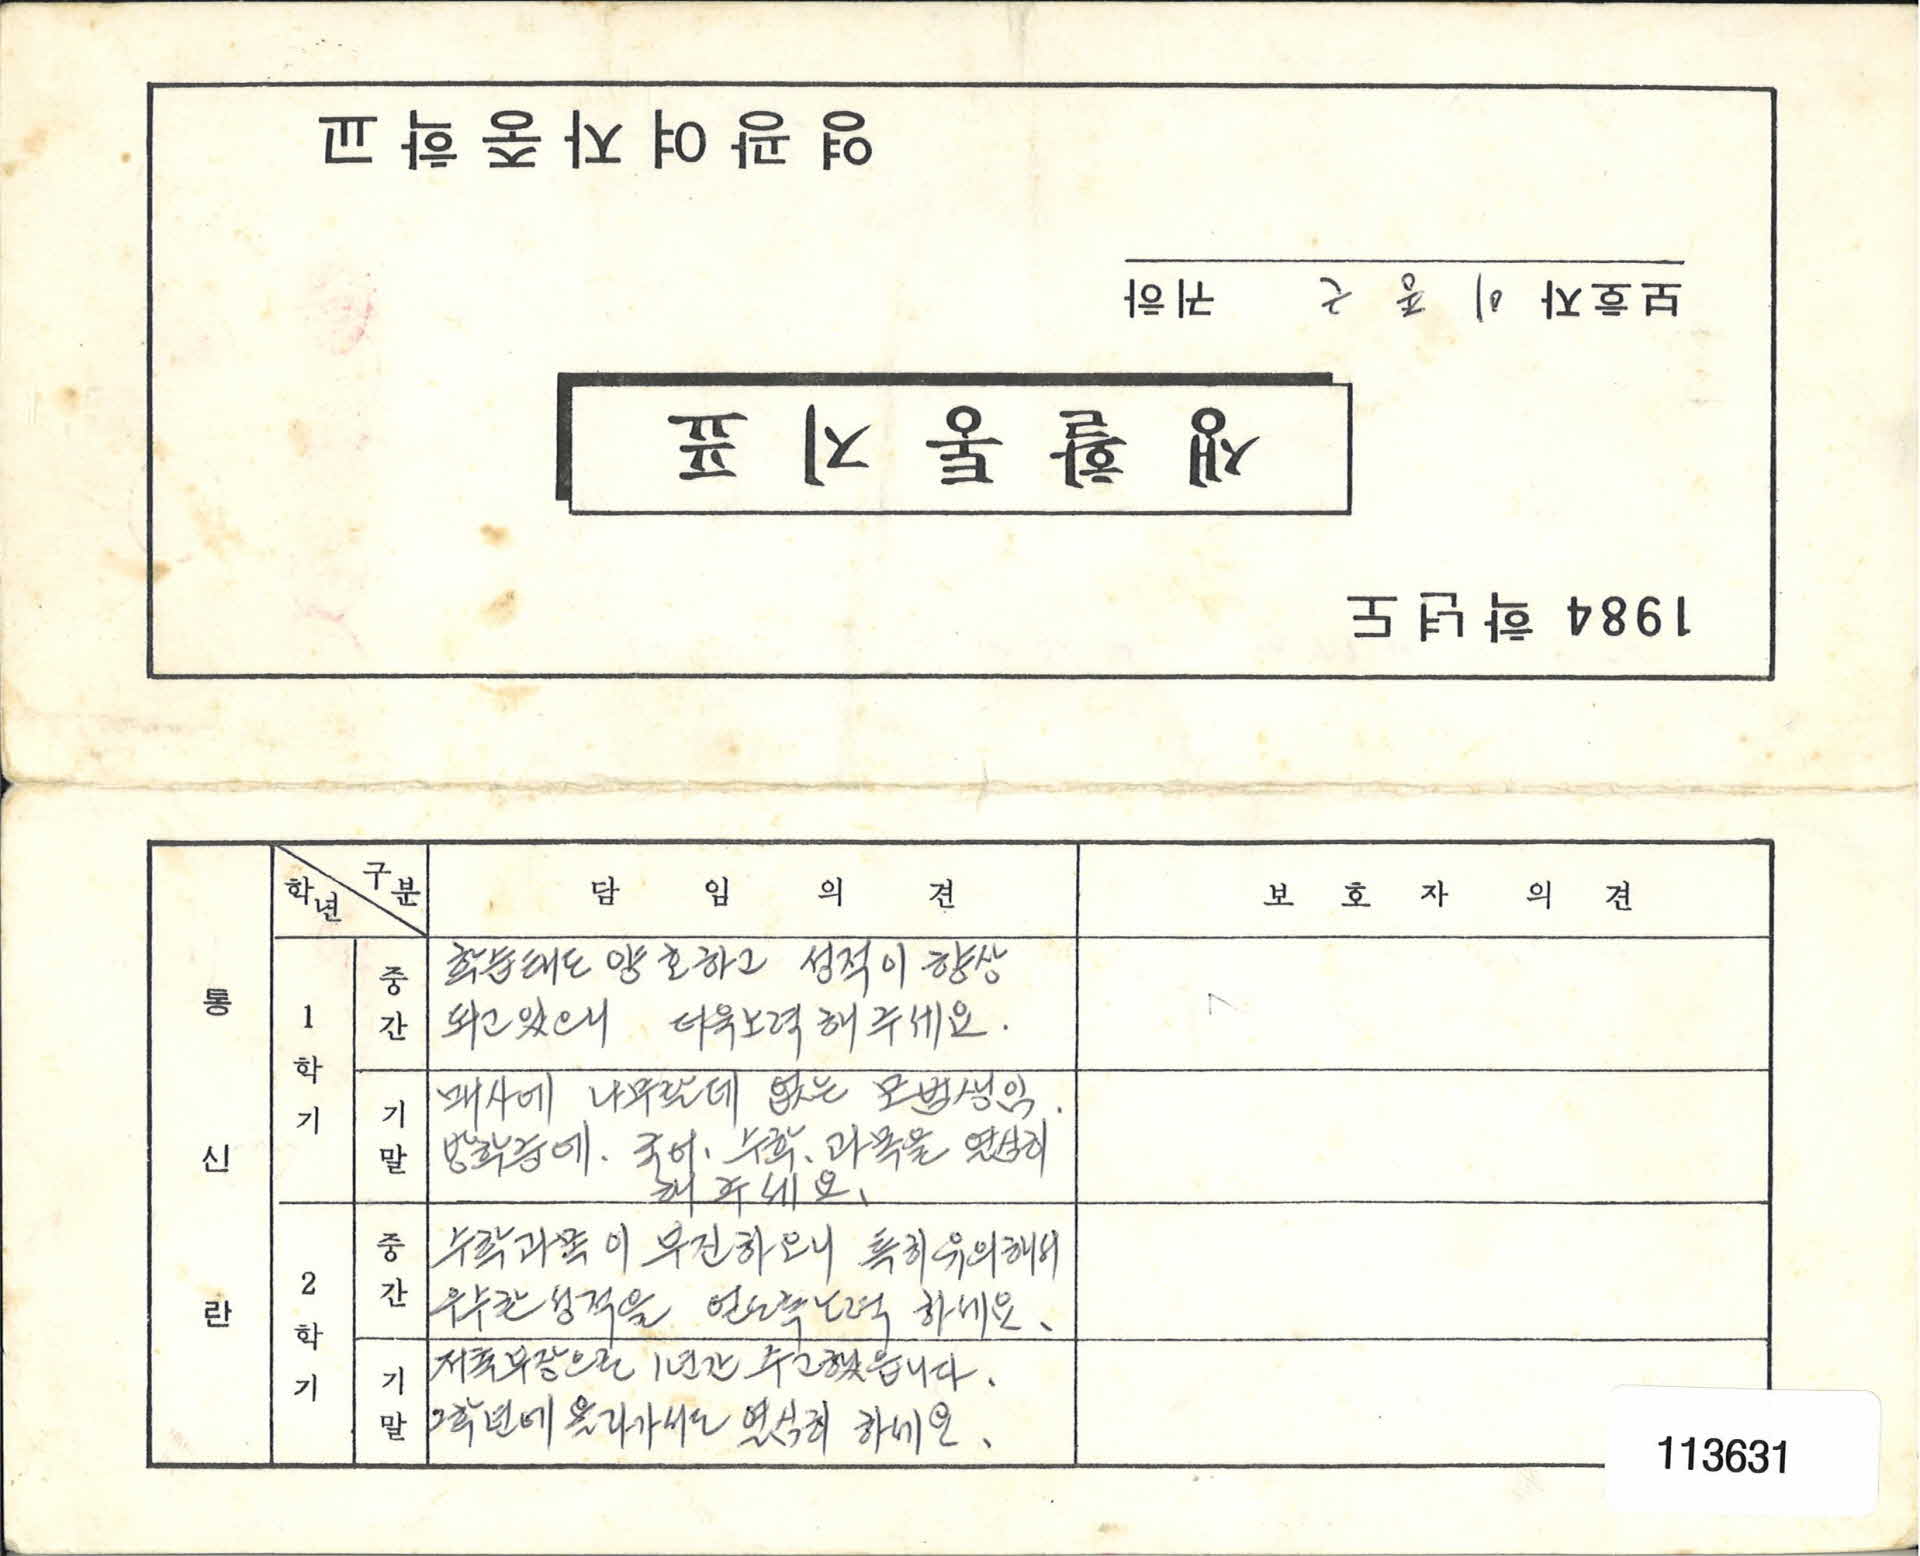 1984 학년도
생활통지표
보호자 이종근 귀하
영광여자중학교
통신란
학년 구분
담임의견
보호자 의견
1학기
중간
학습태도 양호하고 성적이 향상
되고있으니 더욱노력해주세요.
기말
매사에 나무랄데 없는 모범생임.
방학중에. 국어. 수학. 과목을 열심히
해주세요.
2학기
중간
수학과목이 부진하오니 특히유의해서
우수한성적을 얻도록노력 하세요.
기말
저축부장으로 1년간 수고했읍니다.
2학년에올라가서도 열심히 하세요.
113631